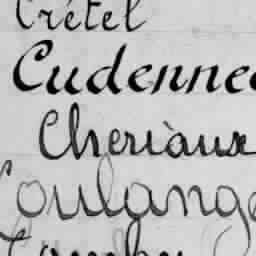 Crétel
Cudennec
Cheriaux
Coulange